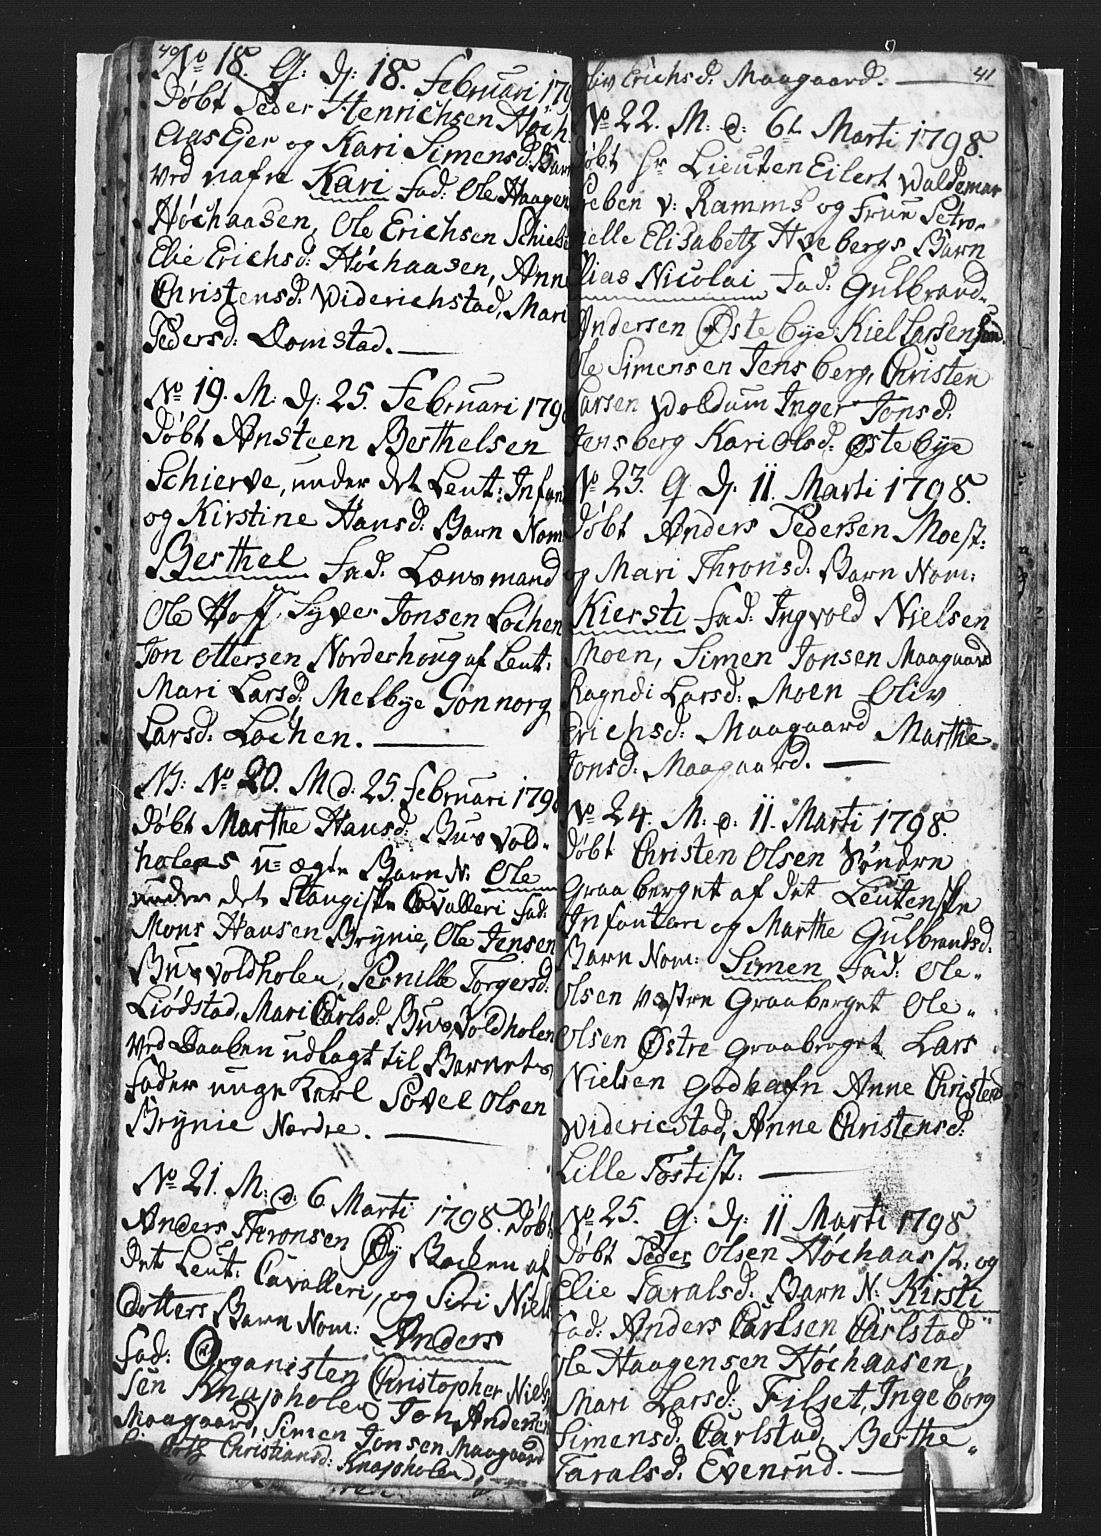 40
No 18. Q: D: 18. Februari 179
Döbt Peder Henrichsen Höch
Aas Eger og Kari Simensd: Barn
Ved nafn Kari fad: Ole Haagen
Höchaasen, Ole Erichsen Schiels
Elie Erichsd: Höchaasen, Anne
Christensd: Widerichstad, Mari
Pedersd: Domstad.
No 19. M: D: 25. Februari 1798
Döbt Ansteen Berthelsen
Schierve, under det Leut: Infan
og Kirstine Hansd: Barn Nom
Berthel fad. Lænsmand
Ole Hoff, Syver Jonsen Löchen
Jon Ottersen Norderhoug af Leut:
Mari Larsd: Melbye Gonnorg
Larsd: Löchen.
N: No 20. M d: 25. Februari 1798
Döbt Marthe Hansd: Busvold-
holens u-ægte Barn N: Ole
under det Stangiske Cavalleri fad:
Mons Hansen Brÿnie, Ole Jensen
Busvoldholen, Pernille Torgersd:
Liödstad, Mari Carlsd: Busvoldholen
Ved Daaben udlagt til Barnets
fader unge Karl Povel Olsen
Brÿnie Nordre.
No 21. M: d: 6 Marti 1798. Döbt
Anders Thronsen Øy Bachen af
det Leut: Cavalleri, og Siri Niels
Dotters Barn Nom: Anders
fad: Organisten Christopher Niels
sen Knapholen Jon Andersen
Maagaard, Simen Jonsen Maagaard
Christiansd: Knapholen
41
Oliv Erichsd: Maagaard.
No 22. M: d: 6t Marti 1798.
Döbt Hr Lieuten Eilert Waldemar
Preben v: Ramms og Frue Petro-
nelle Elisabetz Hvebergs Barn
Elias Nicolai fad: Gulbrand
Andersen Østebye Kiel Larsen
Ole Simensen Jensberg, Christen
Larsen Woldum Inger Jonsd:
Jensberg Kari Olsd: Østebye
No 23. Q D: 11. Marti 1798.
Döbt Anders Pedersen Moest:
og Mari Thronsd: Barn Nom:
Kiersti fad: Ingvold Nielsen
Moen, Simen Jonsen Maagaard
Ragndi Larsd: Moen Oliv
Erichsd: Maagaard Marthe
Jonsd: Maagaard.
No 24. M: d: 11. Marti 1798.
Döbt Christen Olsen Söndre
Graaberget af det Leutenske
Infanteri og Marthe Gulbrandsd:
Barn Nom: Simen fad: Ole
Olsen Vestre Graaberget Ole
Olsen Østre Graaberget Lars
Nielsen Godhafn Anne Christensd
Widericstad, Anne Christensd:
Lille Tostist:
No 25. Q: D: 11 Marti 1798
Döbt Peder Olsen Höchaas st. og
Elie Taralsd: Barn N: Kirsti
fad: Anders Carlsen Carlstad
Ole Haagensen Höchaasen,
Mari Larsd: Filset, Ingeborg
Simensd: Carlstad, Berthe
Taralsd: Evenrud.